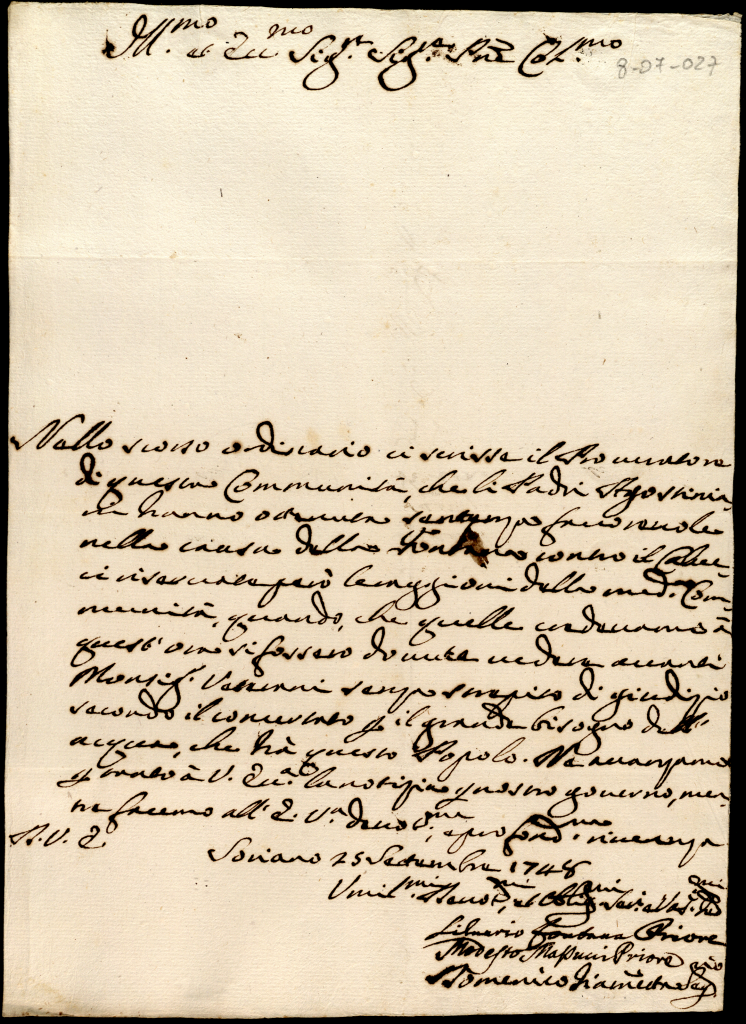 Ill.mo et Ecc.mo Sig.r Sig.r Pnē Col.mo
8-07-027
Nello scorso ordinario ci scrisse il Procuratore
di questa Communità, che li Padri Agostinia,
ni hanno ottenuta sentenza favorevole
nella causa della Fontana contro il
riservate però le raggioni della med.ma Com,
munità, quando, che quelle credevamo à
quest' ora si fossero dovute vedere avanti
Monsig.r Veterani senza strepito di giudizio
secondo il concertato p il grande bisogno dell'
acqua, che hà questo Popolo. Ne avanzamo
p tanto à V. Ecc.a la notizia p nostro governo, men
tre facemo all' E. V.a devot.ma, e profond.ma riverenza
D. V. E.
Soriano 25 Settembre 1748
Umil.mi Devot.mi, et Oblig.mi Ser.i e Vas.li
Liborio Fontana Priore
Modesto Massucci Priore
Domenico Seg.rio